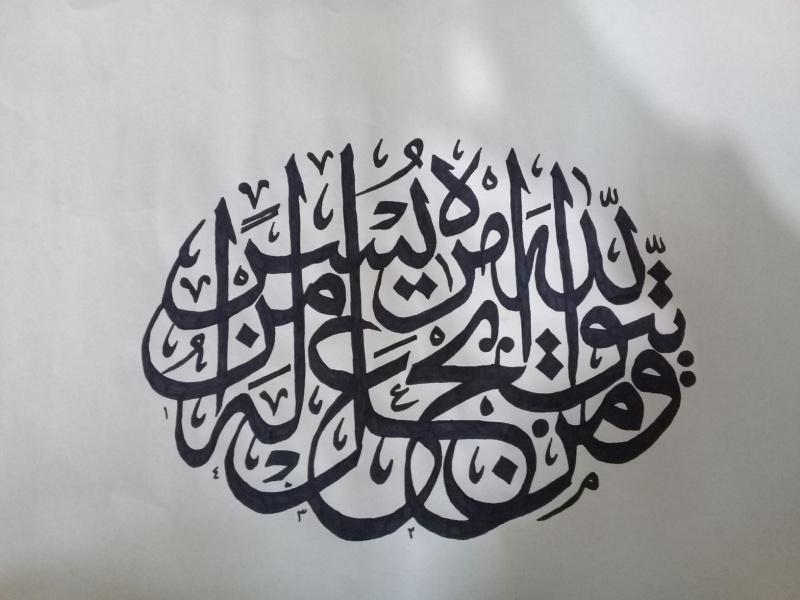 ومن يتق الله يجعل له من أمره يسرا
١ ٤ ٣ ٢